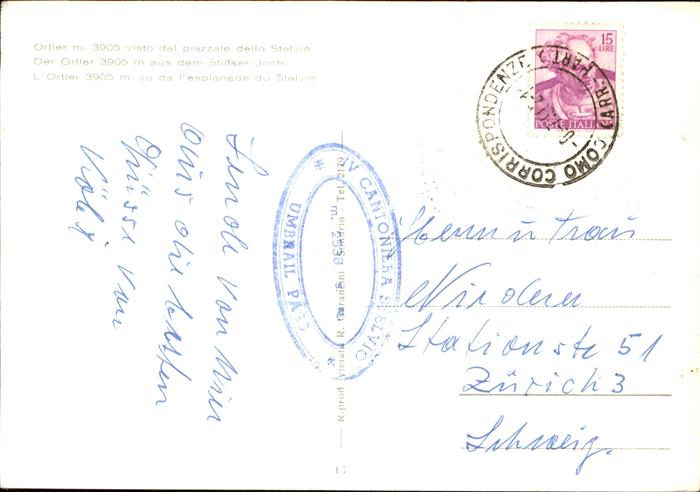 Ortler m. 3905 visto dal piazzale dello Stelvio
Der Ortler 3905 m aus dem Stilfser Joch
L'Ortler 3905 m. vu de l'esplanade du Stelvio
15
LIRE
POSTE ITALIANE
COMO CORRISPONDENZE
ARR. PART.
Sende von hier
aus die besten
Grüsse von
IV CANTONIERA STELVIO
m. 2538
UMBRAIL PASS
Riprod. vietata R. Garancini Sondrio Tel. 2179
17
Herrn u Frau
Stationsstr 51
Zürich 3
Schweiz.